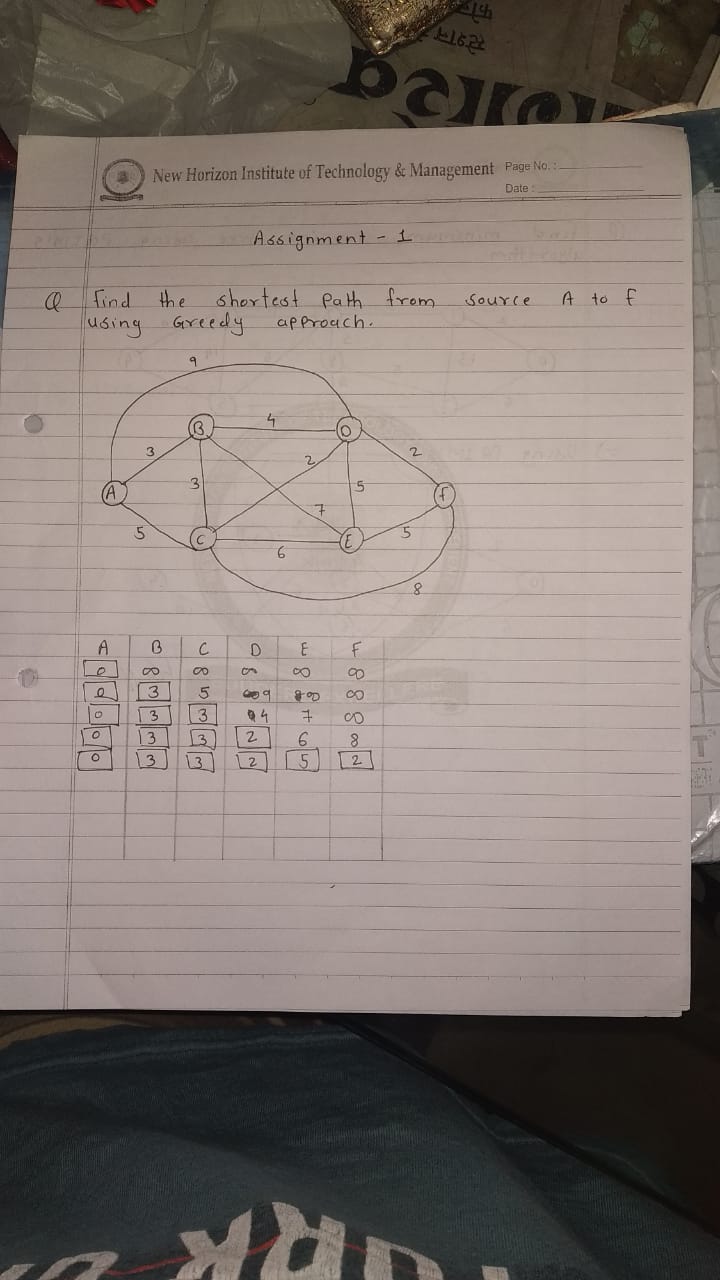 New Horizon Institute of Technology & Management Page No. :
Date :
Assignment - 1
Q find the shortest path from source A to F
using Greedy approach.
9
B 4 D
3 2 2
A 3 5 F
7
5 C 6 E 5
8
A B C D E F
0 ∞ ∞ ∞ ∞ ∞
0 3 5 9 ∞ ∞
0 3 3 4 7 ∞
0 3 3 2 6 8
0 3 3 2 5 2